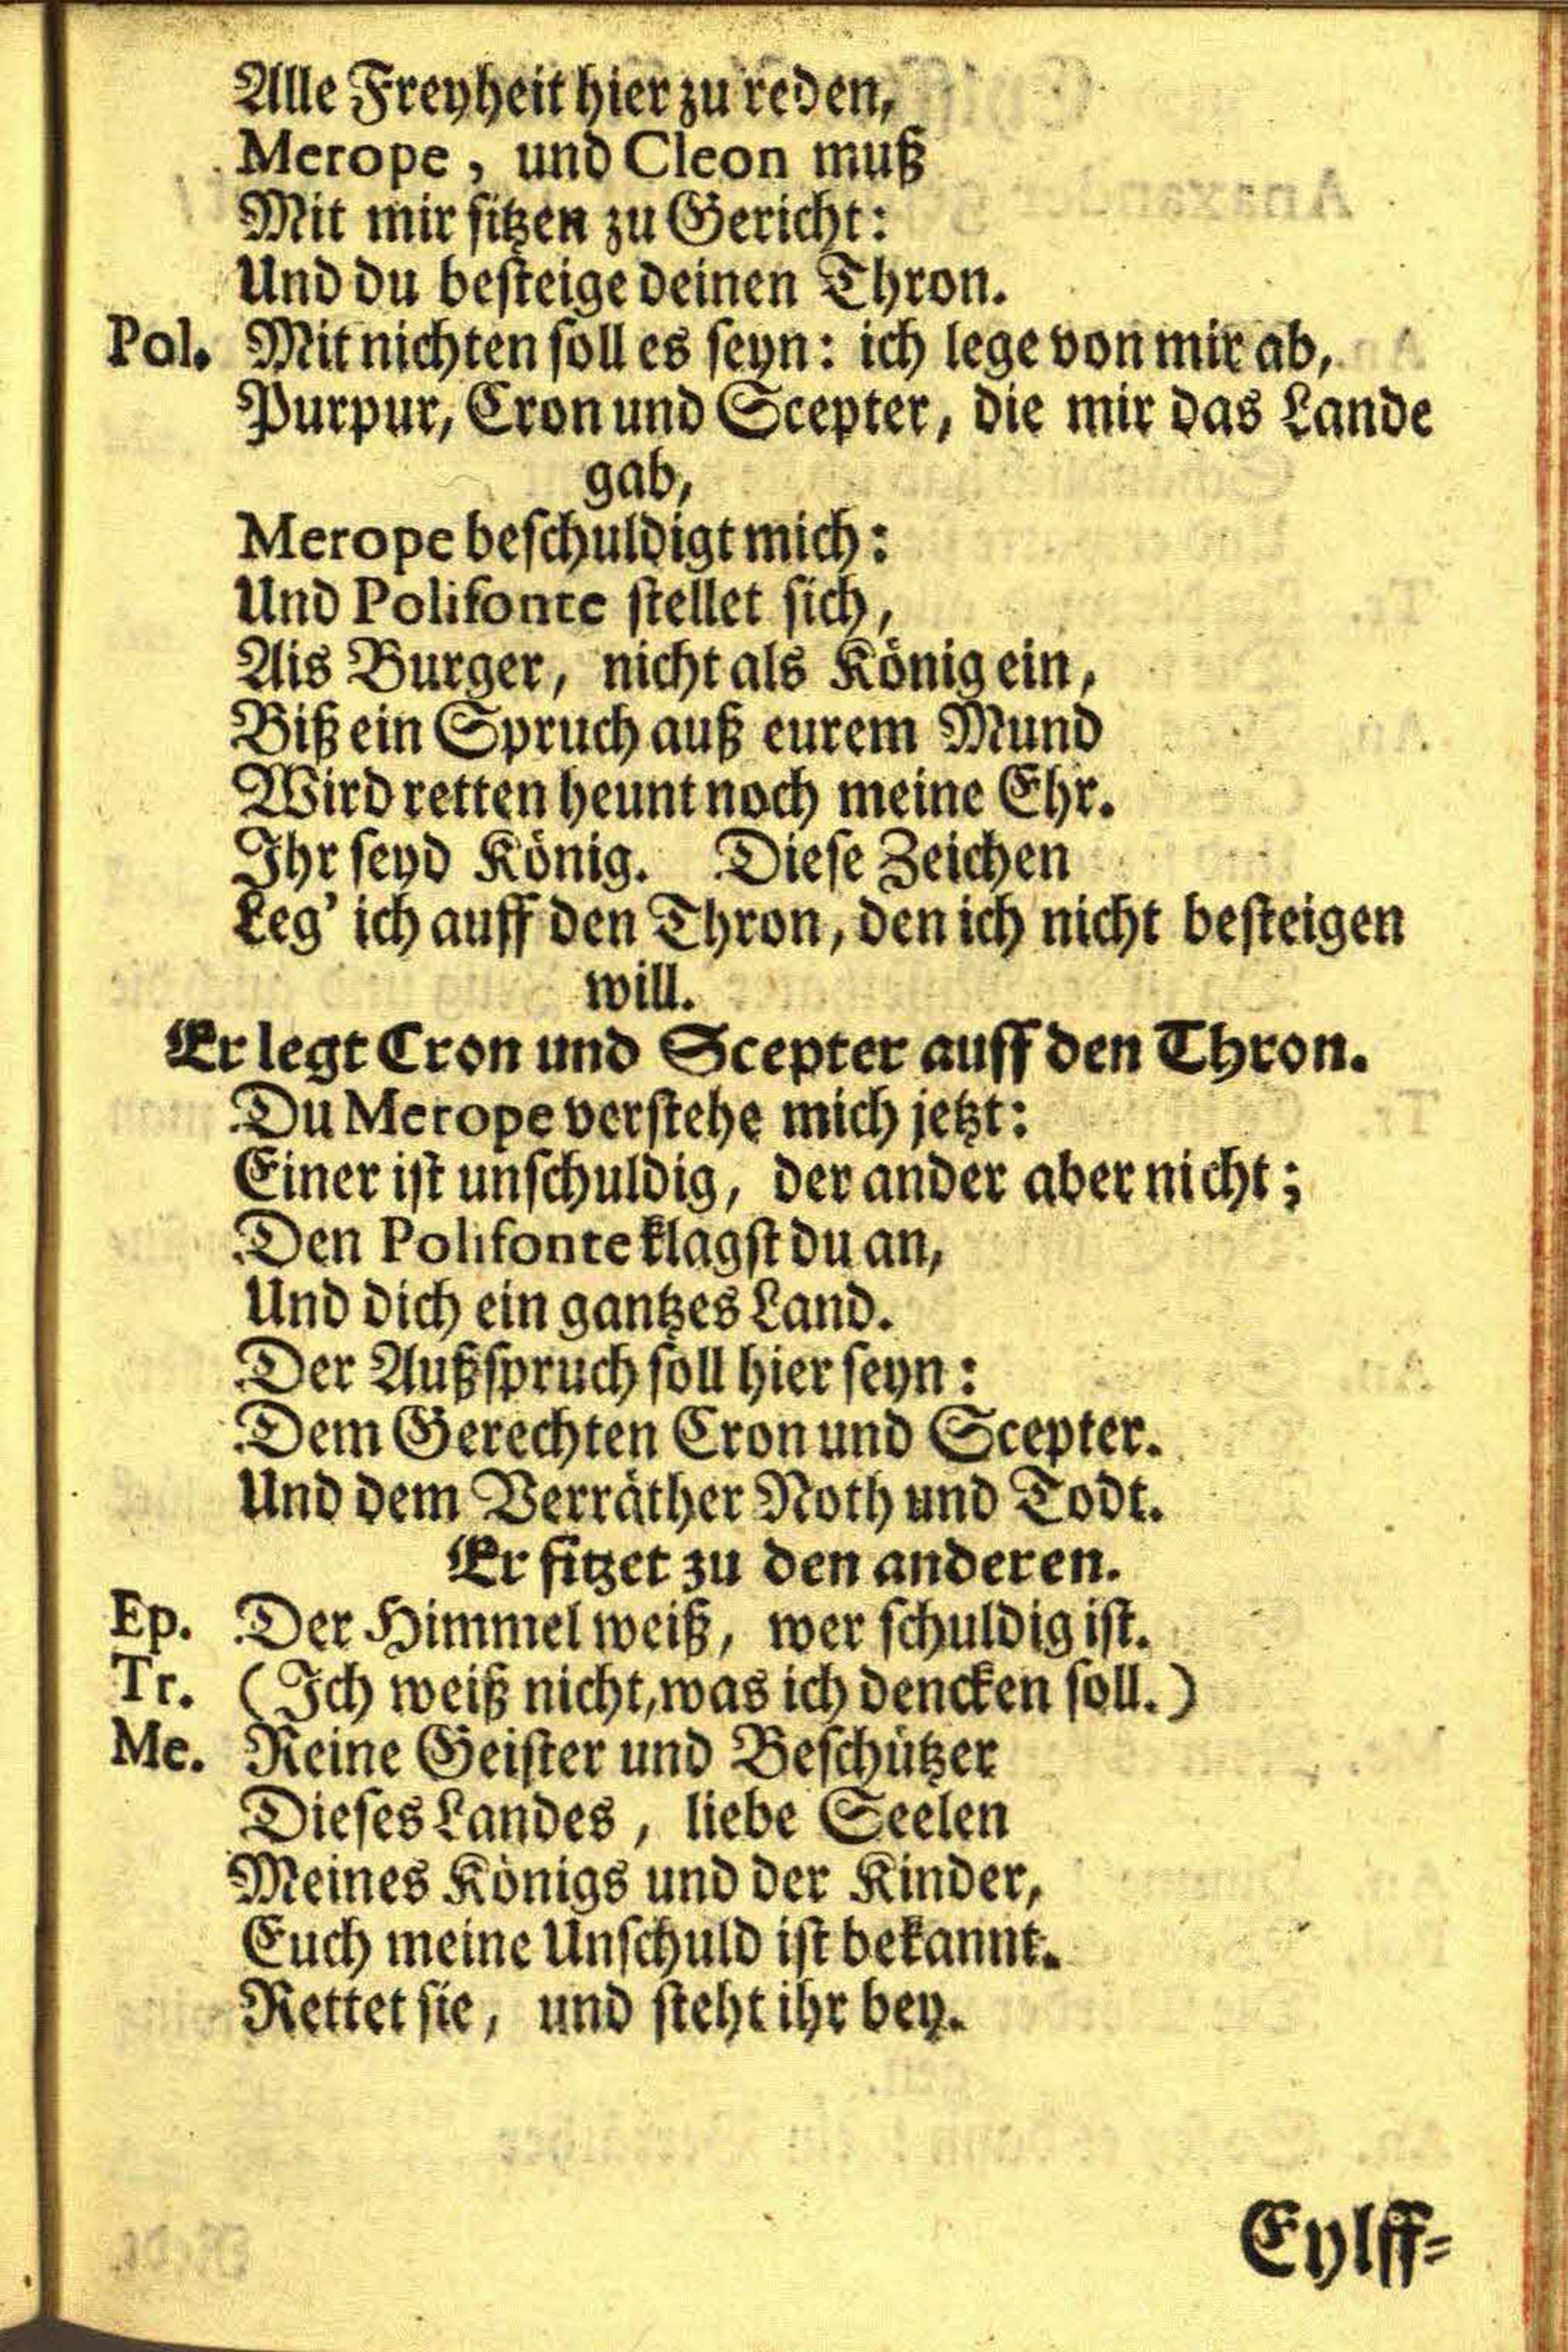 Alle Freyheit hier zu reden,
Merope, und Cleon muß
Mit mir sitzen zu Gericht:
Und du besteige deinen Thron.
Pol. Mit nichten soll es seyn: ich lege von mir ab,
Purpur, Cron und Scepter, die mir das Lande
gab,
Merope beschuldigt mich:
Und Polifonte stellet sich,
Als Burger, nicht als König ein,
Biß ein Spruch auß eurem Mund
Wird retten heunt noch meine Ehr.
Ihr seyd König. Diese Zeichen
Leg' ich auff den Thron, den ich nicht besteigen
will.
Er legt Cron und Scepter auff den Thron.
Du Merope verstehe mich jetzt:
Einer ist unschuldig, der ander aber nicht;
Den Polifonte klagst du an,
Und dich ein gantzes Land.
Der Außspruch soll hier seyn:
Dem Gerechten Cron und Scepter.
Und dem Verräther Noth und Todt.
Er sitzet zu den anderen.
Ep. Der Himmel weiß, wer schuldig ist.
Tr. (Ich weiß nicht, was ich dencken soll.)
Me. Reine Geister und Beschützer
Dieses Landes, liebe Seelen
Meines Königs und der Kinder,
Euch meine Unschuld ist bekannt.
Rettet sie, und steht ihr bey.
Eylff=